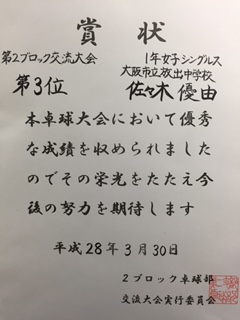 賞状
第2ブロック交流大会
第3位
1年女子シングルス
大阪市立放出中学校
佐々木優由
本卓球大会において優秀
な成績を収められました
のでその栄光をたたえ今
後の努力を期待します
平成28年3月30日
2ブロック卓球部
交流大会実行委員会